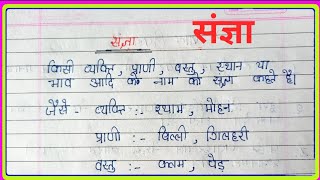 संज्ञा
संज्ञा
किसी व्यक्ति, प्राणी, वस्तु, स्थान या
भाव आदि के नाम को संज्ञा कहते हैं।
जैसे - व्यक्ति :- श्याम, मोहन
प्राणी :- बिल्ली, गिलहरी
वस्तु :- कलम, पेड़